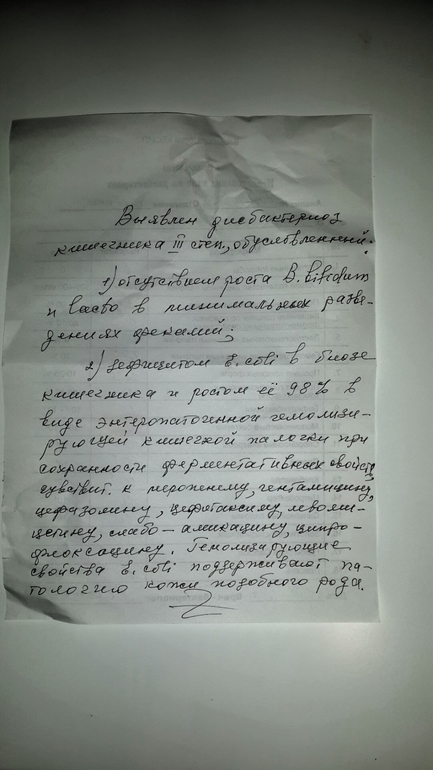 Выявлен дисбактериоз
кишечника III степ., обусловленный:
1) отсутствием роста B. bifidum
и lacto в минимальных разве-
дениях фекалий;
2) дефицитом E. coli в биозе
кишечника и ростом её 98% в
виде энтеропатогенной гемолизи-
рующей кишечной палочки при
сохранности ферментативных свойств,
чувствит. к меропенему, гентамицину,
цефазолину, цефотаксиму, левоми-
цетину, слабо - амикацину, ципро-
флоксацину. Гемолизирующие
свойства E. coli поддерживают па-
тологию кожи подобного рода.